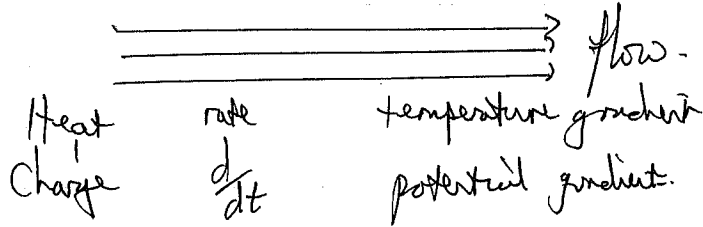 flow.
Heat rate temperature gradient
Charge d/dt potential gradient.